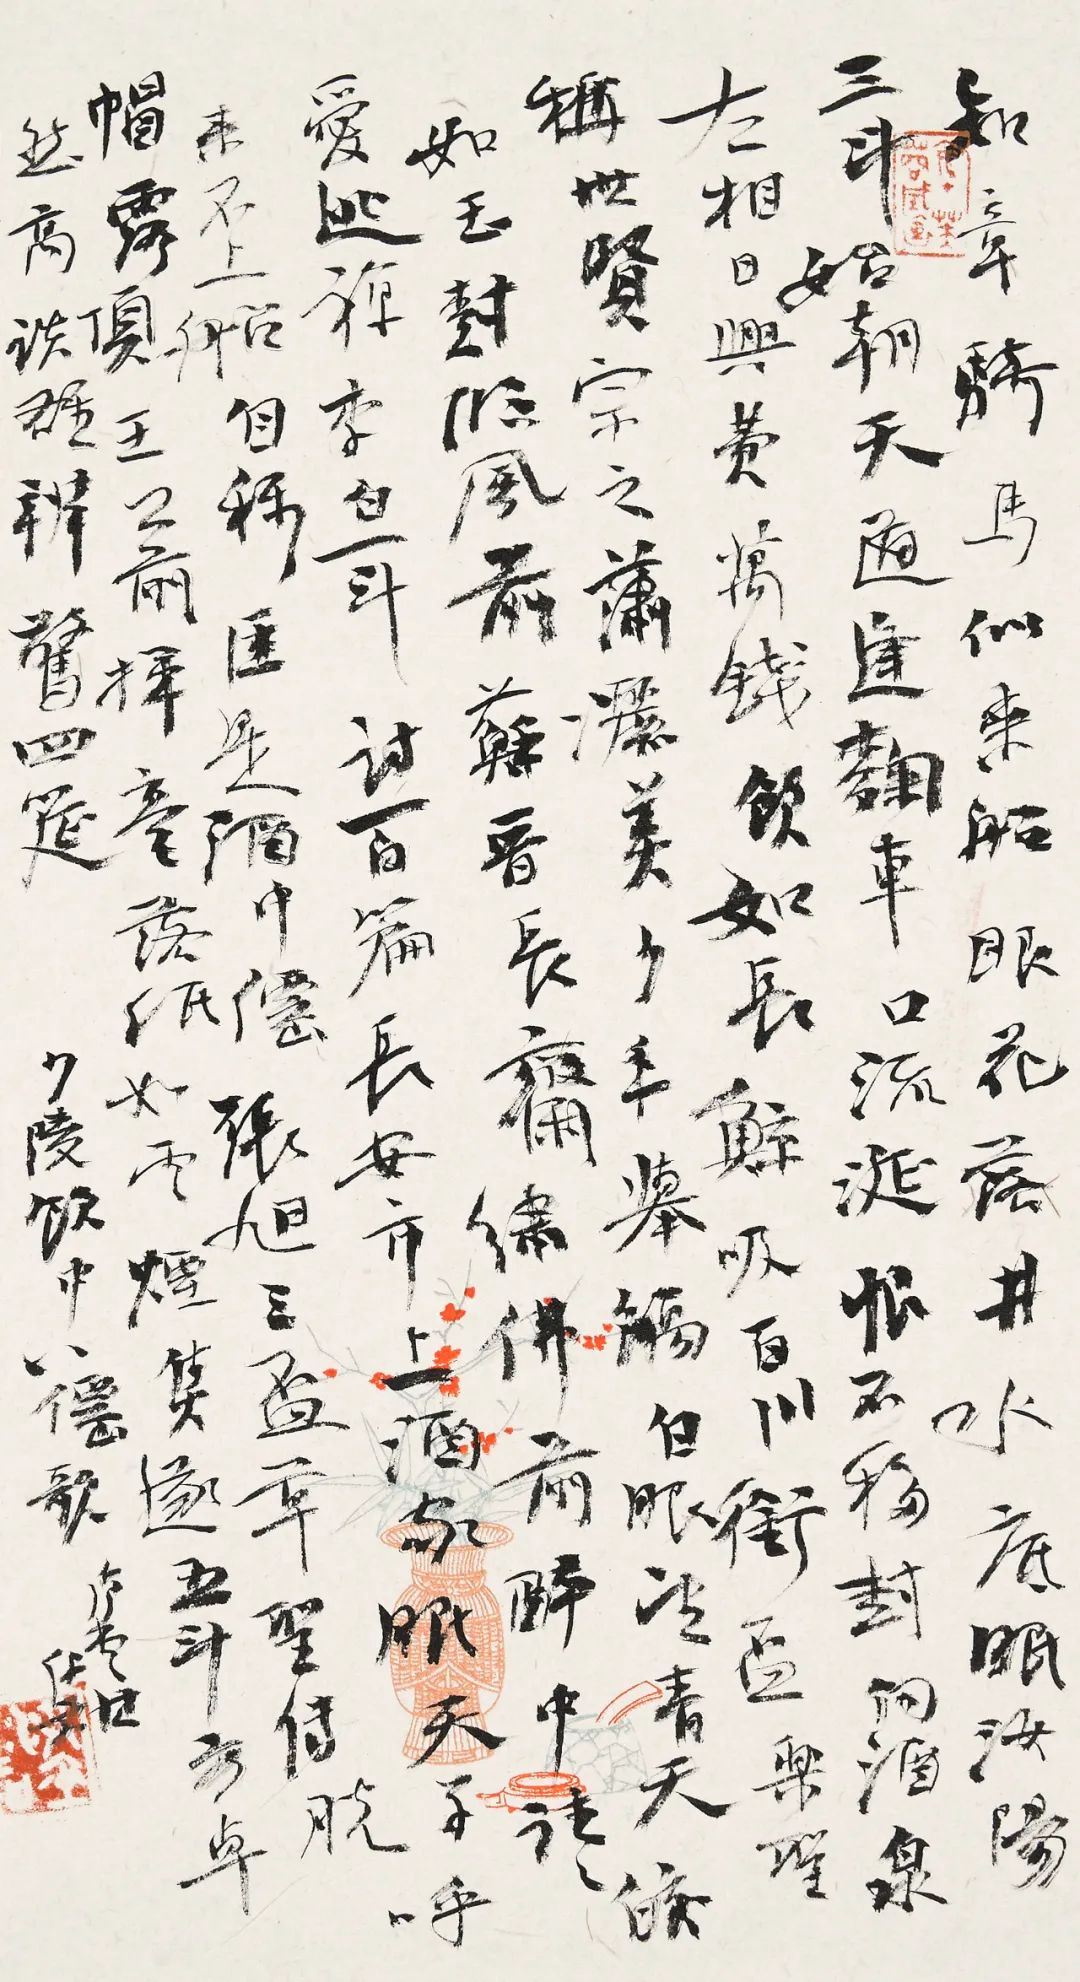 知章騎馬似乘船眼花落井水底眠汝陽
三斗始朝天道逢麴車口流涎恨不移封向酒泉
左相日興費萬錢飲如長鯨吸百川銜盃樂聖
稱世賢宗之蕭灑美少年舉觴白眼望青天皎
如玉樹臨風前蘇晉長齋繡佛前醉中往往
愛逃禪李白一斗詩百篇長安市上酒家眠天子呼
來不上船自稱臣是酒中僊張旭三盃草聖傳脫
帽露頂王公前揮毫落紙如雲煙焦遂五斗方卓
然高談雄辯驚四筵
少陵飲中八僊歌